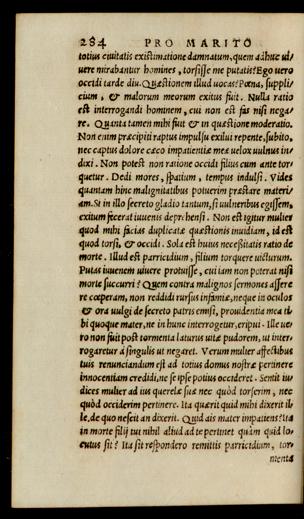 284 PRO MARITO
totius ciuitatis existimatione damnatum, quem adhuc ui/
uere mirabantur homines, torsisse me putatis? Ego uero
occidi tarde diu. Quæstionem illud uocas? Pœna, suppli/
cium, & malorum meorum exitus fuit. Nulla ratio
est interrogandi hominem, cui non est fas nisi nega/
re. Quanta tamen mihi fuit & in quæstione moderatio.
Non enim præcipiti raptus impulsu exilui repente, subito,
nec captus dolore cæco impatientiæ meæ uelox uulnus in/
dixi. Non potest non ratione occidi filius cum ante tor/
quetur. Dedi mores, spatium, tempus indulsi. Vides
quantam hinc malignitatibus potuerim præstare materi/
am. Si in illo secreto gladio tantum, si uulneribus egissem,
exitum fecerat iuuenis deprehensi. Non est igitur mulier
quod mihi facias duplicatæ quæstionis inuidiam, id est
quod torsi, & occidi. Sola est huius necessitatis ratio de
morte. Illud est parricidium, filium torquere uicturum.
Putas iuuenem uiuere potuisse, cui iam non poterat nisi
morte succurri? Quem contra malignos sermones assere
re cœperam, non reddidi rursus infamiæ, neque in oculos
& ora uulgi de secreto patris emisi, prouidentia mea ti/
bi quoque mater, ne in hunc interrogetur, eripui. Ille ue/
ro non fuit post tormenta laturus uitæ pudorem, ut inter/
rogaretur à singulis ut negaret. Verum mulier affectibus
tuis renunciandum est ad totius domus nostræ pertinere
innocentiam credidi, ne se ipse potius occideret. Sentit iu/
dices mulier ad ius querelæ suæ nec quòd torserim, nec
quòd occiderim pertinere. Ita quærit quid mihi dixerit il/
le, de quo nescit an dixerit. Quid ais mater impatiens? Ita
in morte filij tui nihil aliud ad te pertinet quàm quid lo/
cutus sit? Ita sit respondero remittis parricidium, tor/
menta